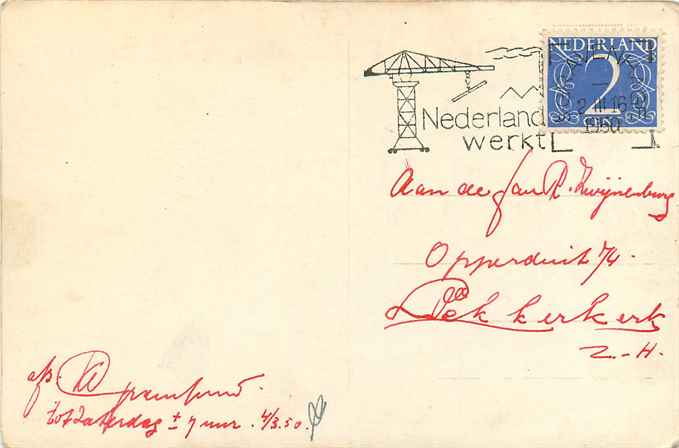 NEDERLAND
2
CENT
2 III 16
1950
Nederland
werkt
Aan de fam R. Zwijnenburg
Opperduit 74.
Lekkerkerk
Z.-H.
afz.
tot Zaterdag ± 7 uur. 4/3.50.